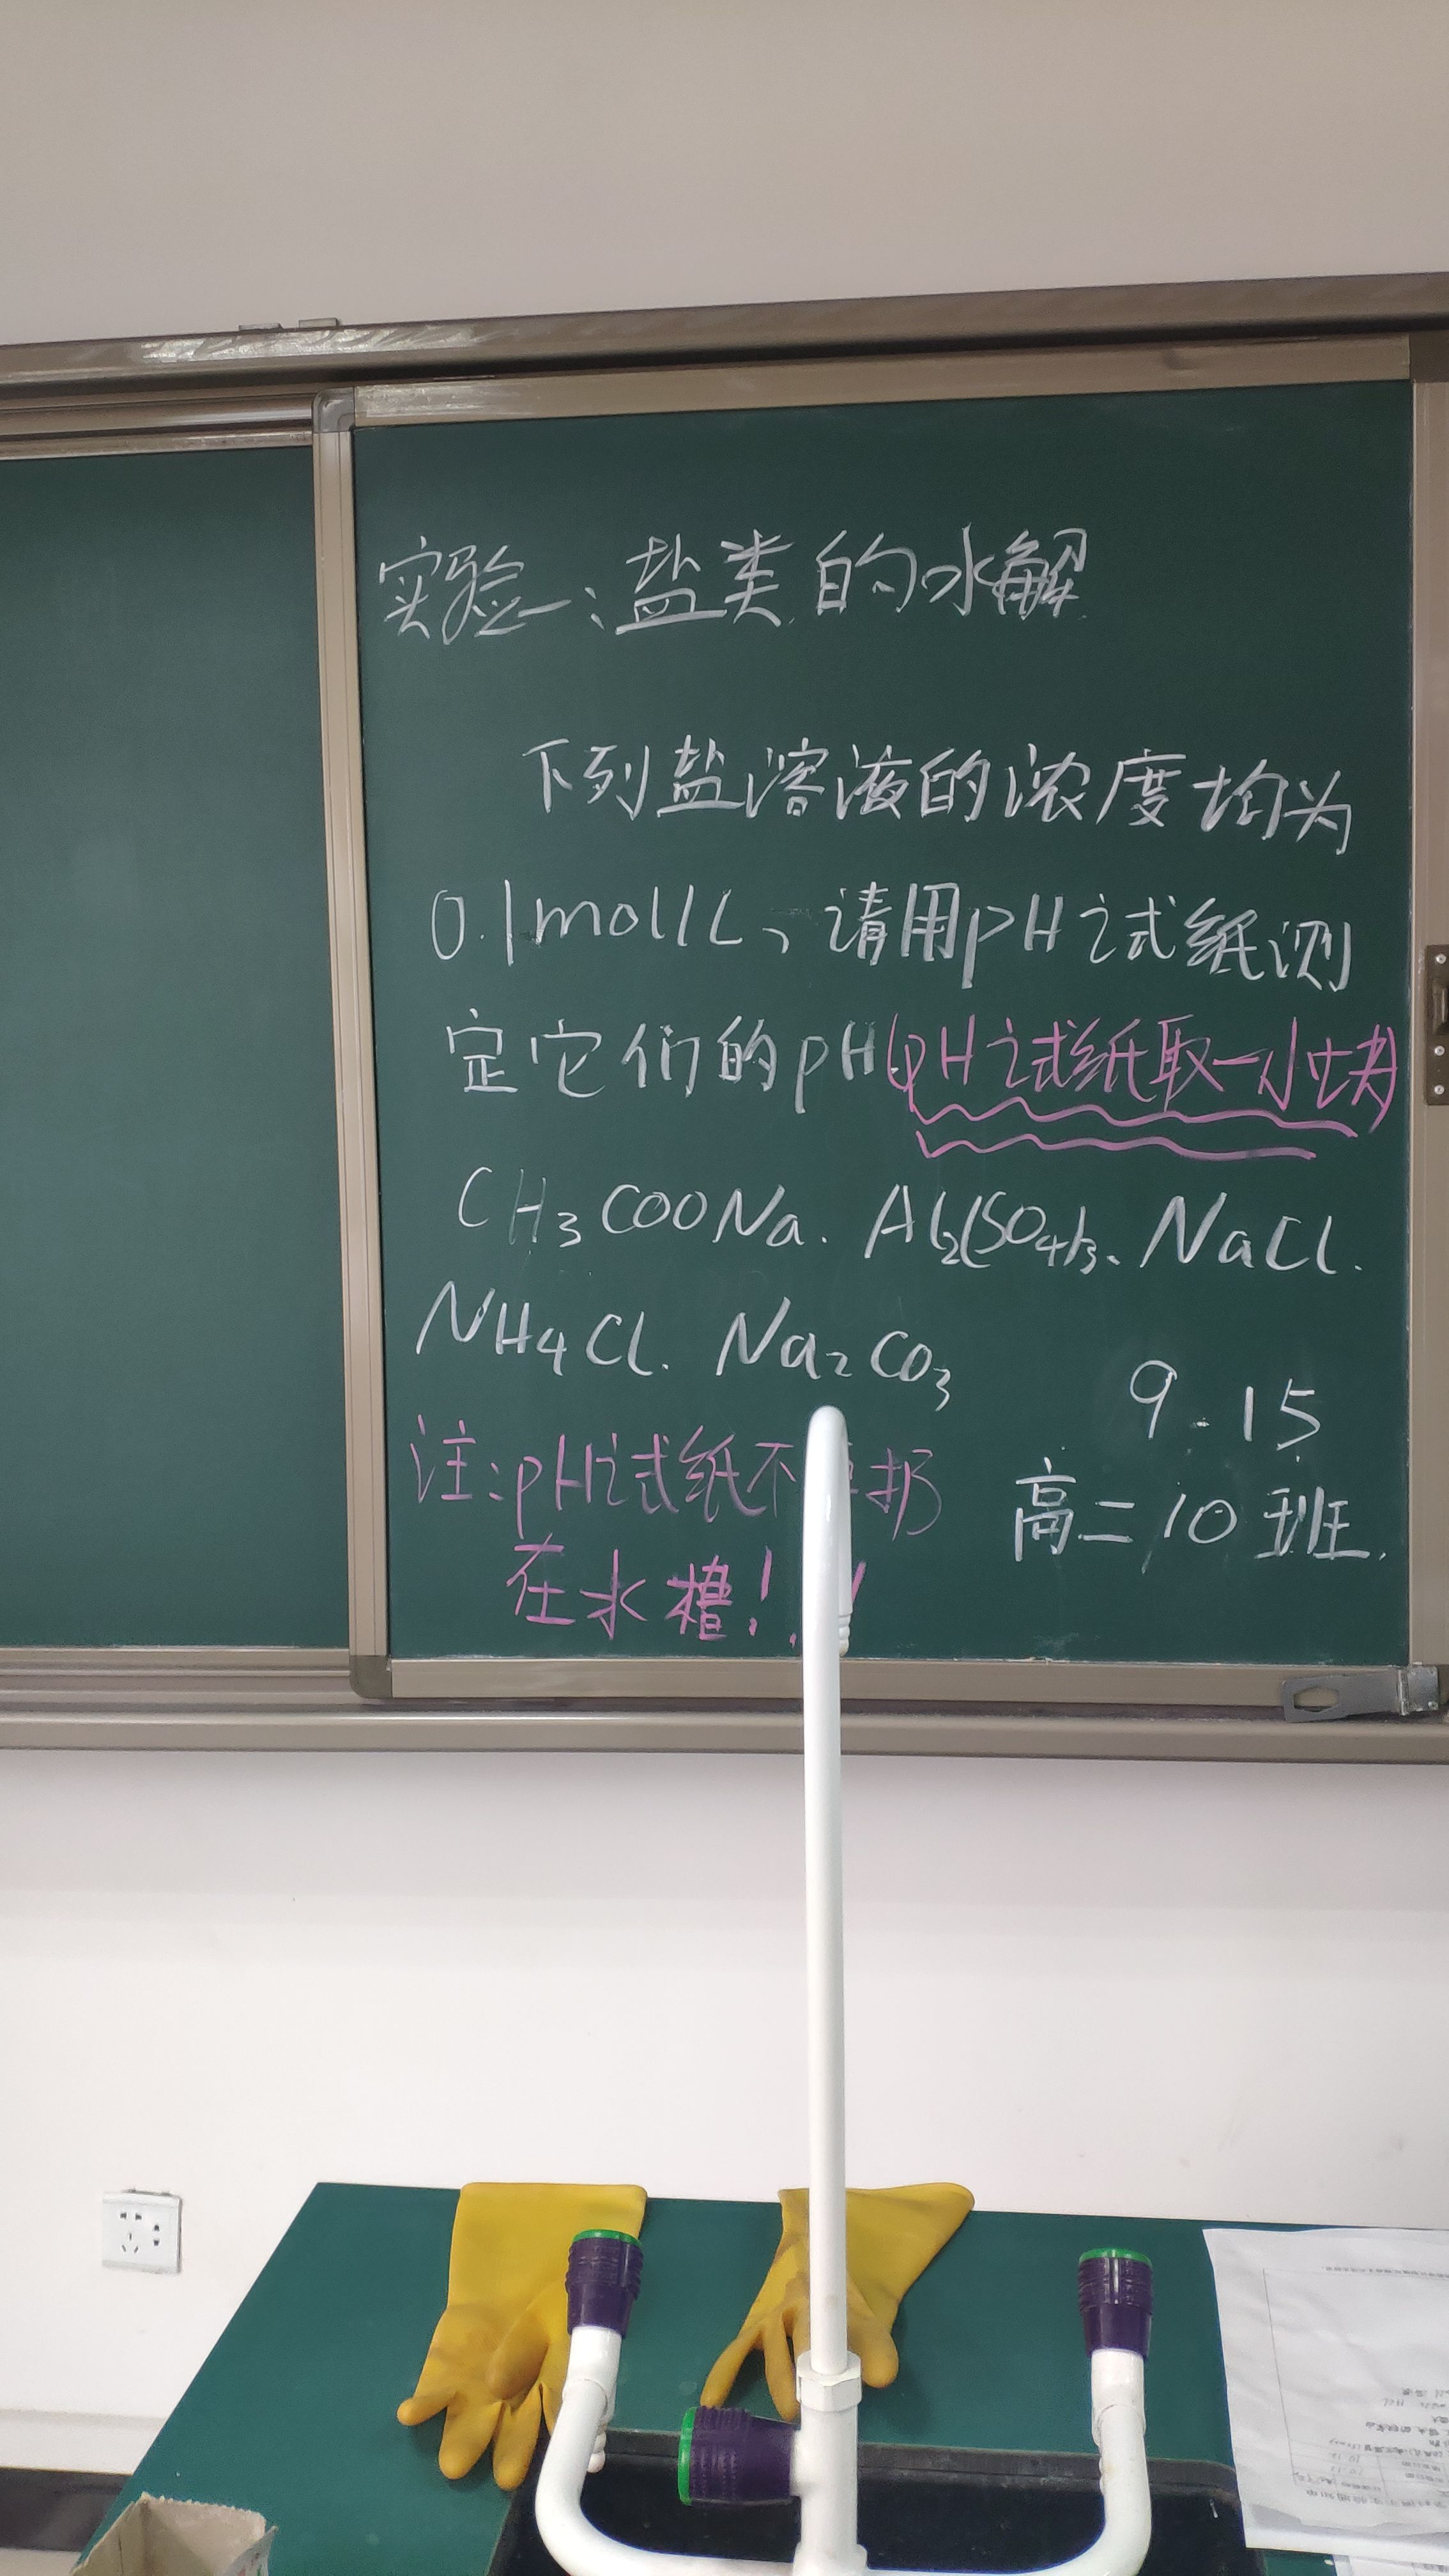 实验一:盐类的水解
下列盐溶液的浓度均为
0.1mol/L、请用pH试纸测
定它们的pH.(pH试纸取一小块)
CH₃COONa. Al₂(SO₄)₃、NaCl.
NH₄Cl. Na₂CO₃
9.15
注:pH试纸不 扔
高二10班.
在水槽!